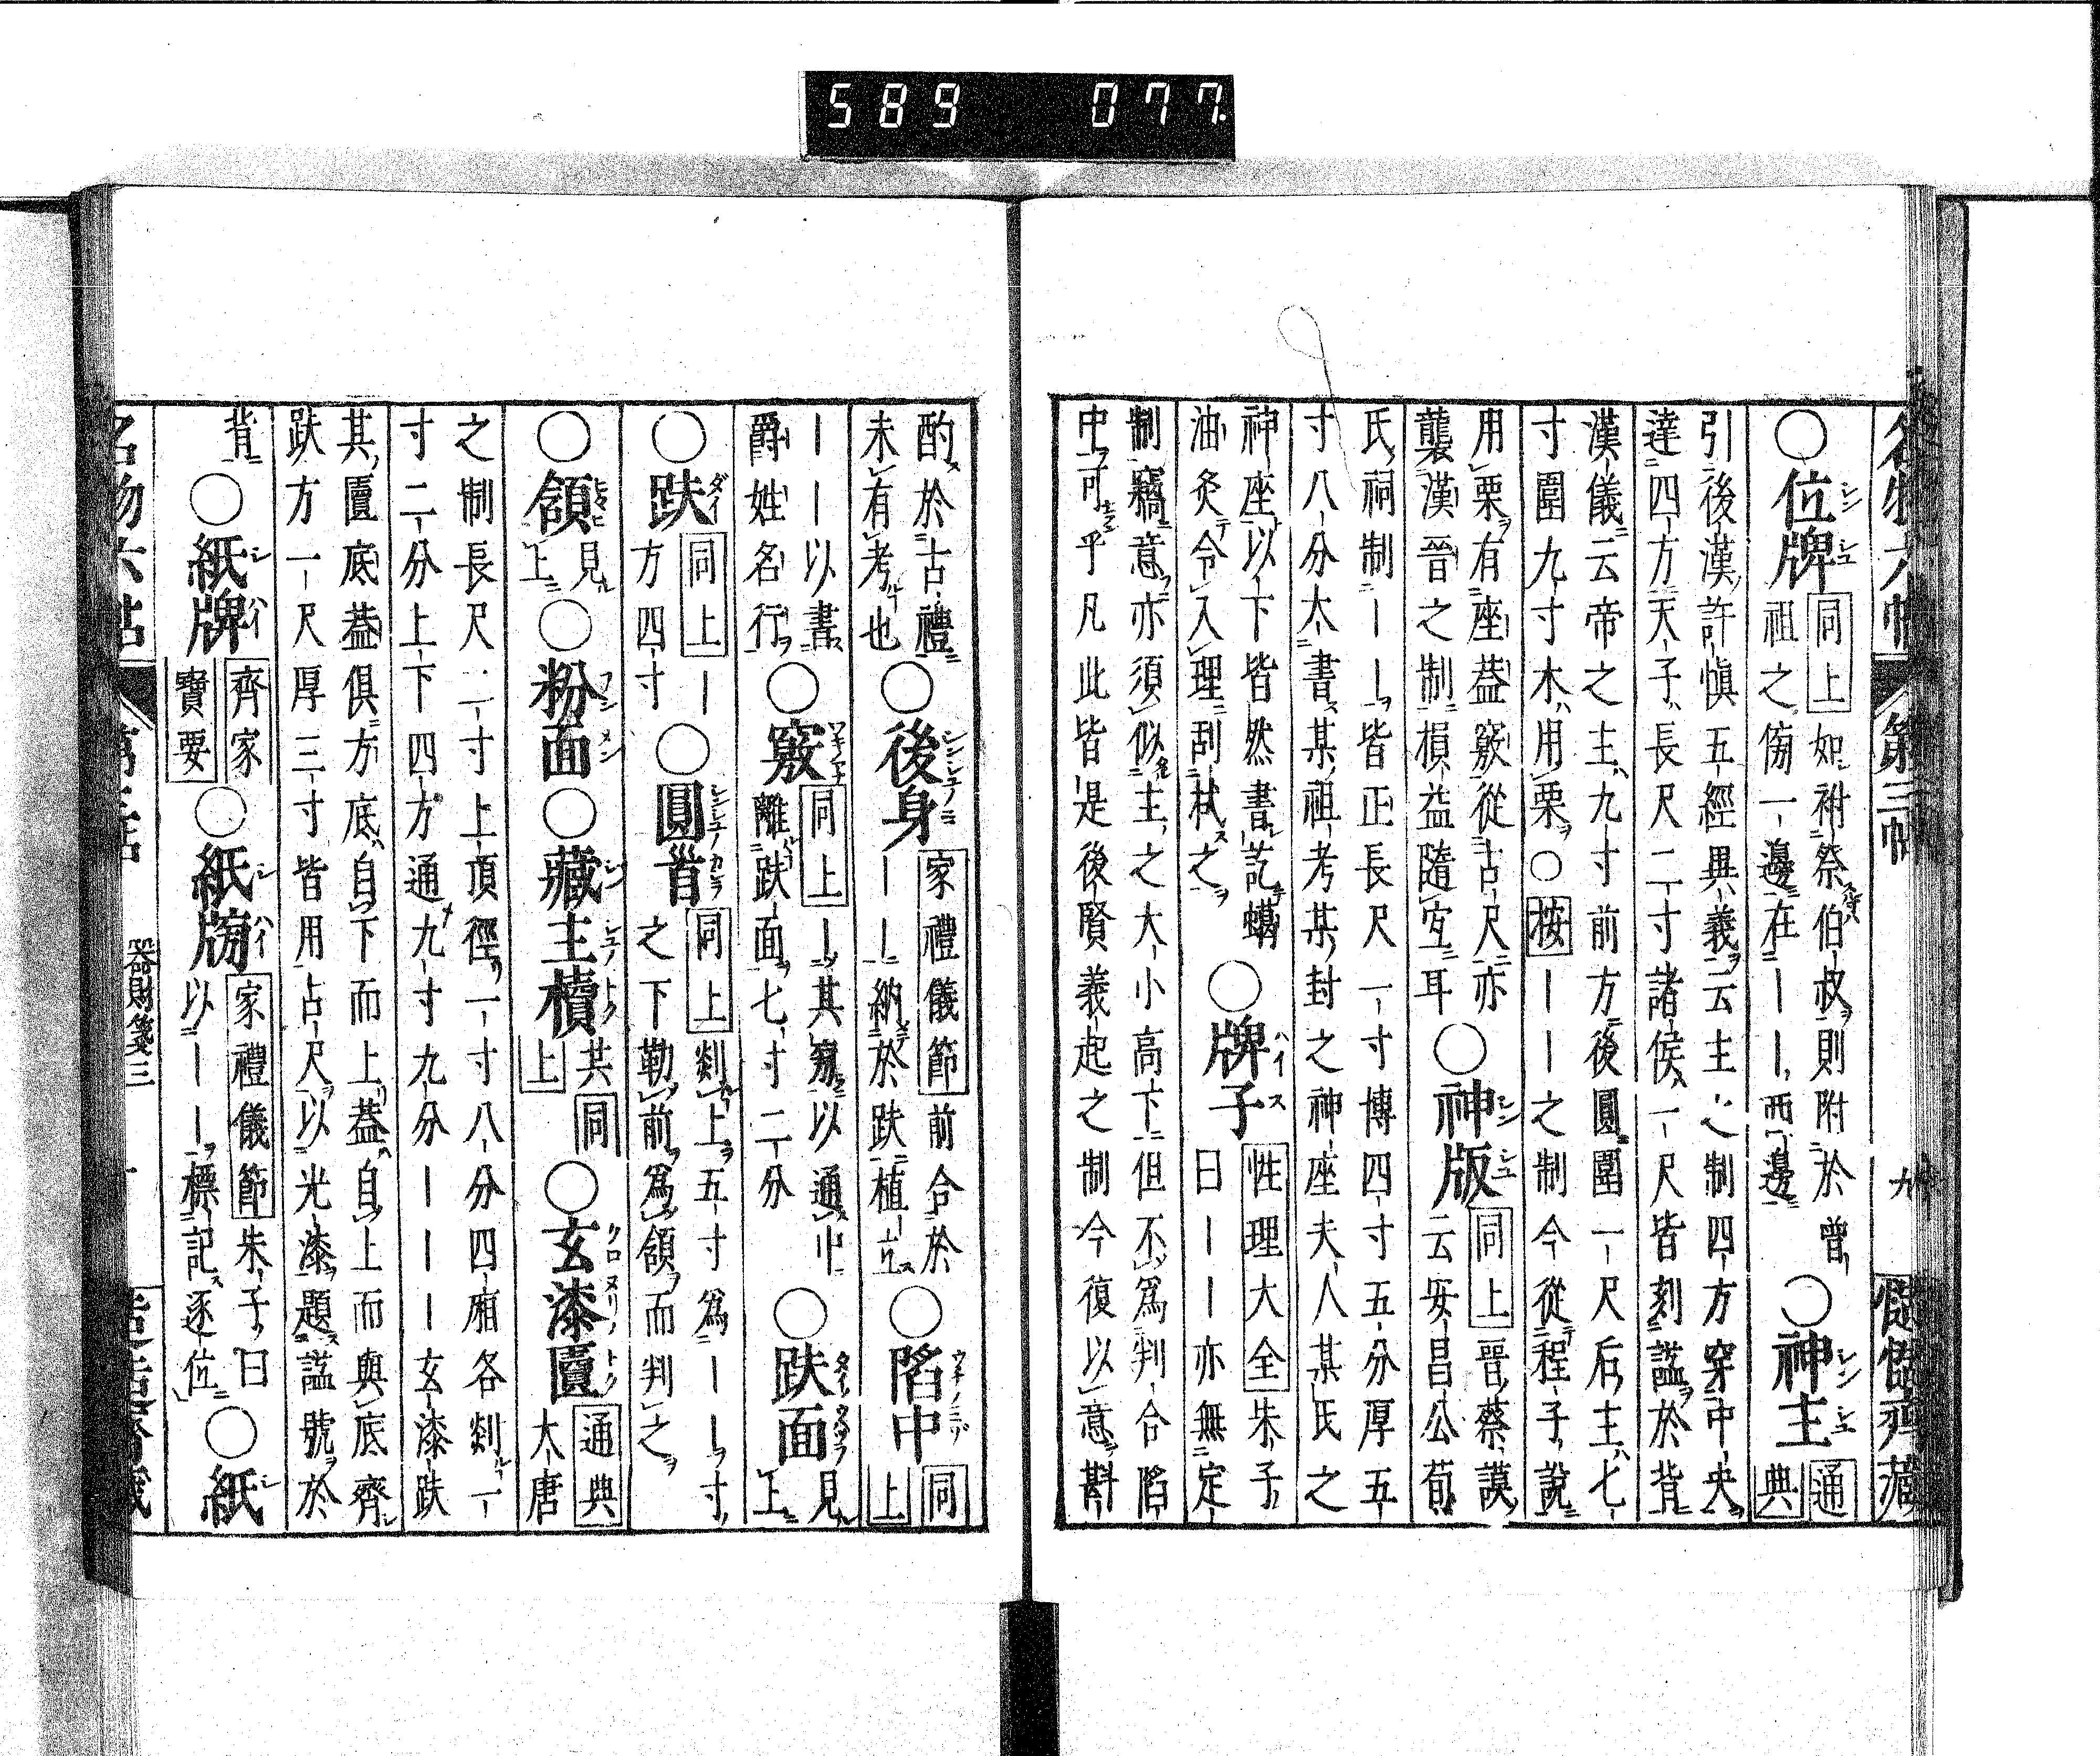 第三帖 九
○位牌 同上 如祔祭伯叔則附於曾
祖之傍一邊在——西邊 ○神主 通典
引後漢許慎五經異義云主之制四方穿中央
達四方天子長尺二寸諸侯一尺皆刻謚於背
漢儀云帝之主九寸前方後圓圍一尺后主七
寸圍九寸木用栗○按——之制今從程子說
用栗有座蓋竅從古尺亦
襲漢晉之制損益隨宜耳 ○神版 同上 晉蔡謨
云安昌公荀
氏祠制——皆正長尺一寸博四寸五分厚五
寸八分大書某祖考某封之神座夫人某氏之
神座以下皆然書訖蠟
油炙令入理刮拭之 ○牌子 性理大全 朱子
曰——亦無定
制竊意亦須似主之大小高下但不爲判合陷
中可乎凡此皆是後賢義起之制今復以意斟
酌於古禮
未有考也 ○後身 家禮儀節 前合於
——納於趺植立 ○陷中 同上
——以書
爵姓名行 ○竅 同上 —其旁以通中
離趺面七寸二分 ○趺面 見上
○趺 同上 —
方四寸 ○圓首 同上 剡上五寸爲——寸
之下勒前爲頷而判之
○頷 見上 ○粉面 ○藏主櫝 共同上 ○玄漆匱 通典 大唐
之制長尺二寸上頂徑一寸八分四廂各剡一
寸二分上下四方通九寸九分———玄漆趺
其匱底蓋俱方底自下而上蓋自上而與底齊
趺方一尺厚三寸皆用古尺以光漆題謚號於
背 ○紙牌 齊家寶要 ○紙牓 家禮儀節 朱子曰
以——標記逐位 ○紙
器財箋三
589 077